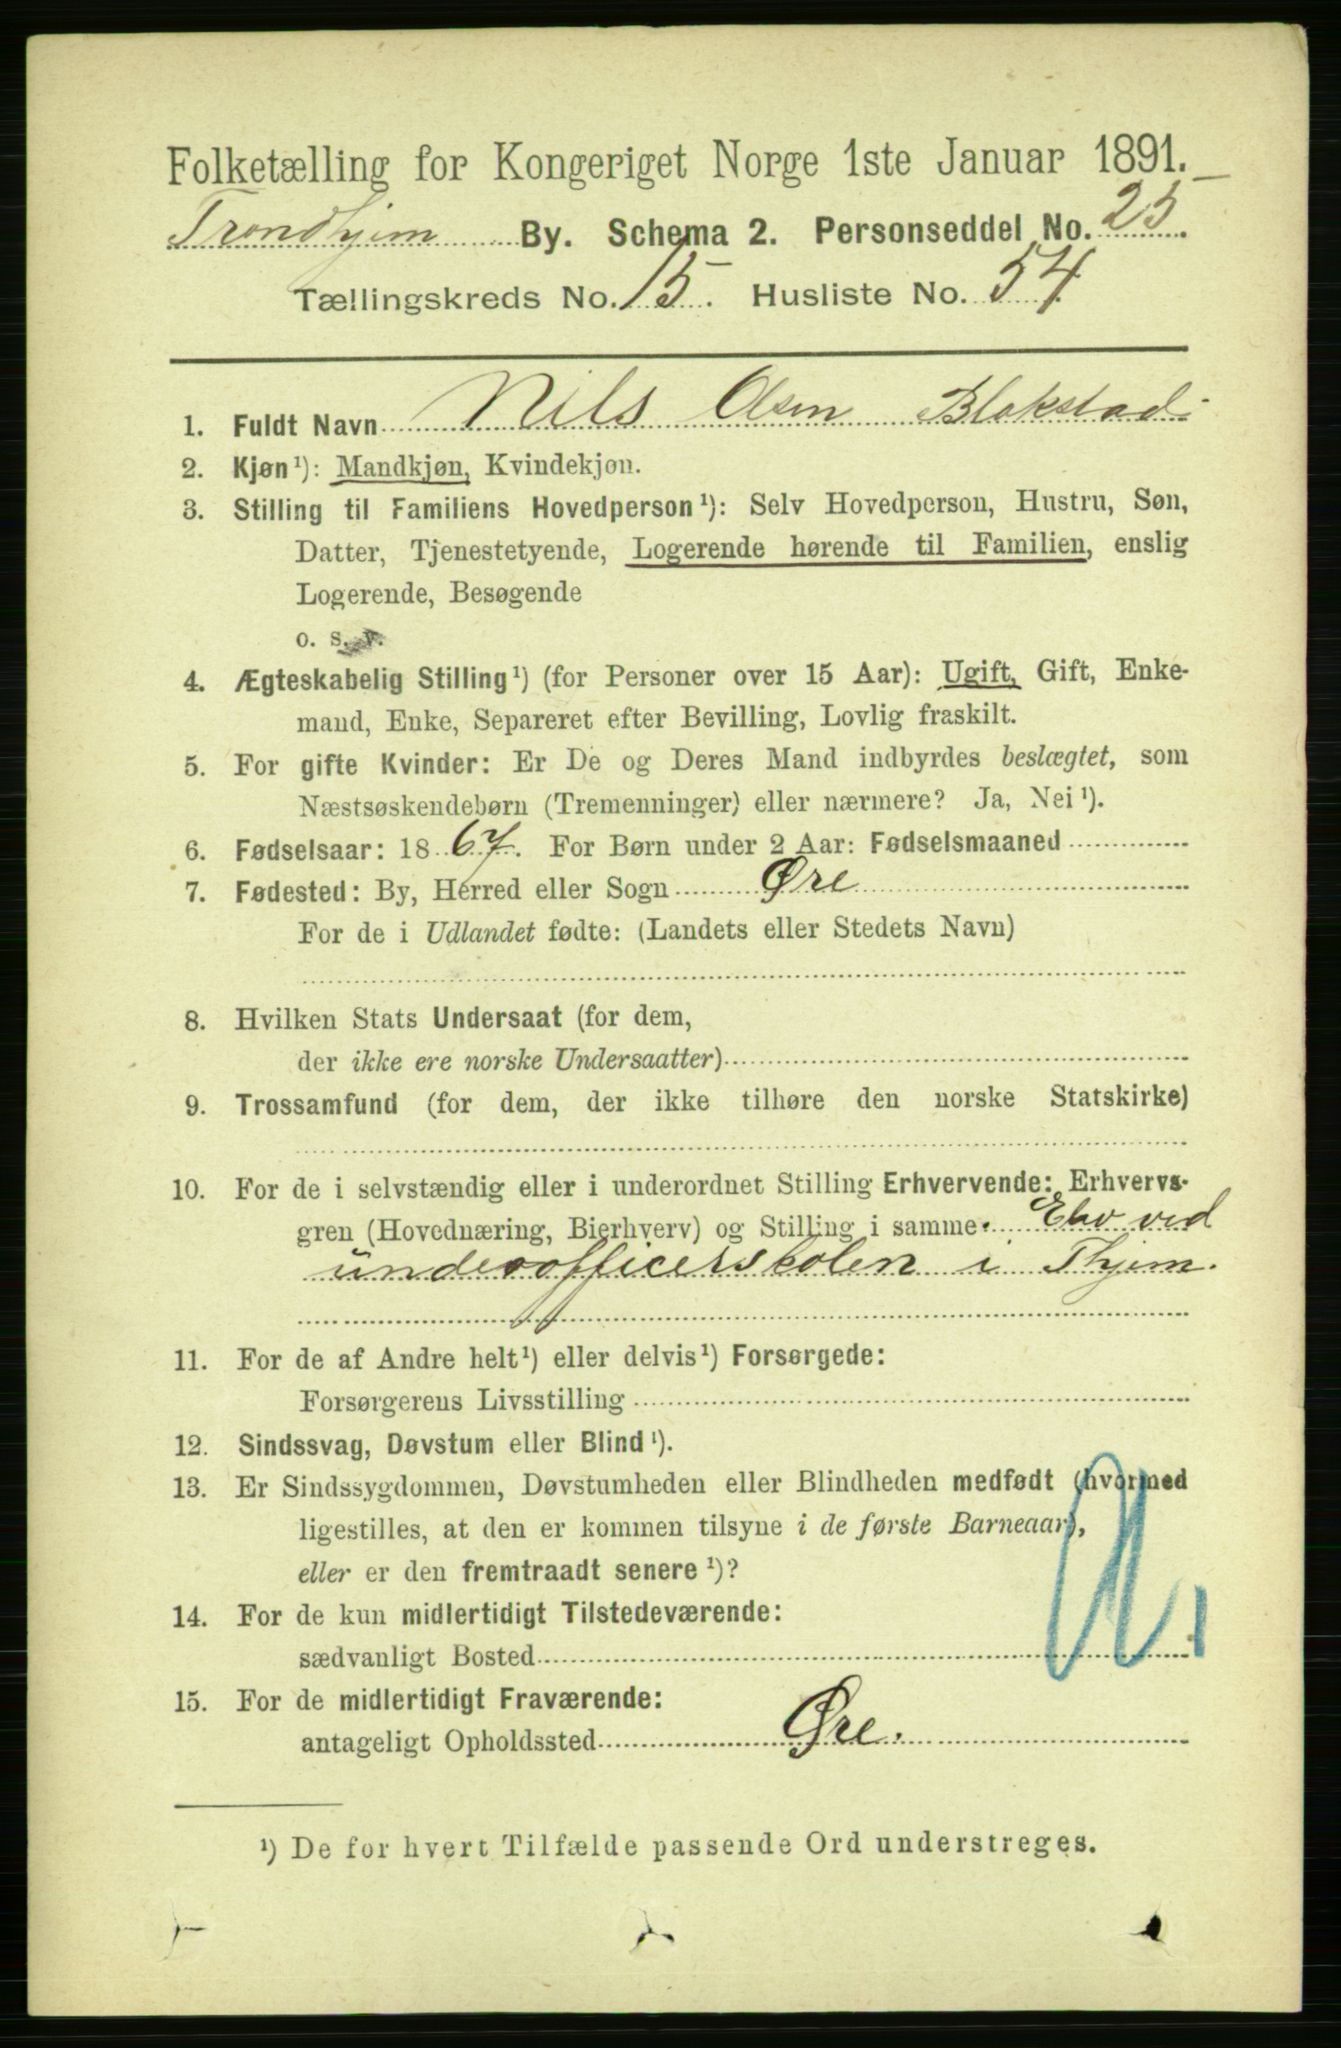 Folketælling for Kongeriget Norge 1ste Januar 1891.
Trondhjem By. Schema 2. Personseddel No. 25.
Tællingskreds No. 15. Husliste No. 54.
1. Fuldt Navn Nils Olsen Blakstad
2. Kjøn¹): Mandkjøn, Kvindekjøn.
3. Stilling til Familiens Hovedperson¹): Selv Hovedperson, Hustru, Søn,
Datter, Tjenestetyende, Logerende hørende til Familien, enslig
Logerende, Besøgende
o. s. v.
4. Ægteskabelig Stilling¹) (for Personer over 15 Aar): Ugift, Gift, Enke-
mand, Enke, Separeret efter Bevilling, Lovlig fraskilt.
5. For gifte Kvinder: Er De og Deres Mand indbyrdes beslægtet, som
Næstsøskendebørn (Tremenninger) eller nærmere? Ja, Nei¹).
6. Fødselsaar: 1867. For Børn under 2 Aar: Fødselsmaaned
7. Fødested: By, Herred eller Sogn Øre
For de i Udlandet fødte: (Landets eller Stedets Navn)
8. Hvilken Stats Undersaat (for dem,
der ikke ere norske Undersaatter)
9. Trossamfund (for dem, der ikke tilhøre den norske Statskirke)
10. For de i selvstændig eller i underordnet Stilling Erhvervende: Erhvervs-
gren (Hovednæring, Bierhverv) og Stilling i samme. Elev ved
underofficerskolen i Thjem.
11. For de af Andre helt¹) eller delvis¹) Forsørgede:
Forsørgerens Livsstilling
12. Sindssvag, Døvstum eller Blind¹).
13. Er Sindssygdommen, Døvstumheden eller Blindheden medfødt (hvormed
ligestilles, at den er kommen tilsyne i de første Barneaar),
eller er den fremtraadt senere¹)?
14. For de kun midlertidigt Tilstedeværende:
sædvanligt Bosted
15. For de midlertidigt Fraværende:
antageligt Opholdssted Øre.
¹) De for hvert Tilfælde passende Ord understreges.